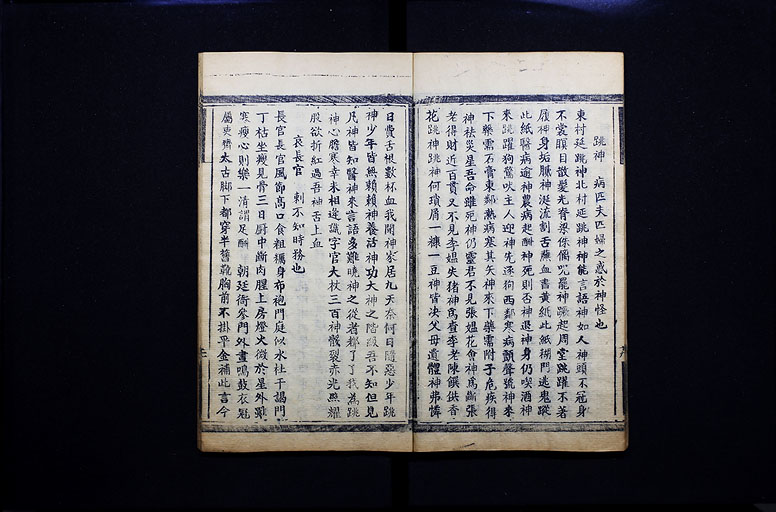 跳神　病匹夫匹婦之惑於神怪也
東村延跳神北村延跳神神能言語神如人神頭不冠身
不裳瞑目散髮光脊梁傍偶咒罷神躁起周堂跳躍不著
履神身垢膩神涎流割舌蘸血書黃紙此紙糊門逃鬼蹤
此紙醫病逾神農病起酬神死則否神退神身仍喫酒神
來跳躍狗驚吠主人迎神先逐狗西鄰寒病顫聲號神來
下藥需石膏東鄰熱病塞其矢神來下藥需附子危疾得
神祛災星吾命雖死神仍靈君不見張媼花會神爲斷張
老得財近百貫又不見李媼失猪神爲查李老陳饌供香
花跳神跳神何瑣屑一糠一豆神皆决父母遺體神弗憐
日費舌根數杯血我聞神家居九天奈何日隨惡少年跳
神少年皆無賴賴神養活神功大神之階級吾不知但見
凡神皆知醫神來言語多難曉神之從者都了了我為跳
神心膽寒幸未相逢識字官大杖三百神骸裂赤光照耀
股欲折紅過吾神舌上血
哀長官　刺不知時務也
長官長官風節高口食粗糲身布袍門庭似水杜干謁門
丁枯坐瘦見骨三日厨中斷肉腥上房燈火微於星外雖
寒瘦心則樂一清謂足酬　朝廷衙參門外畫鳴鼓衣冠
屬吏臍太古脚下都穿半舊靴胸前不掛平金補此言今